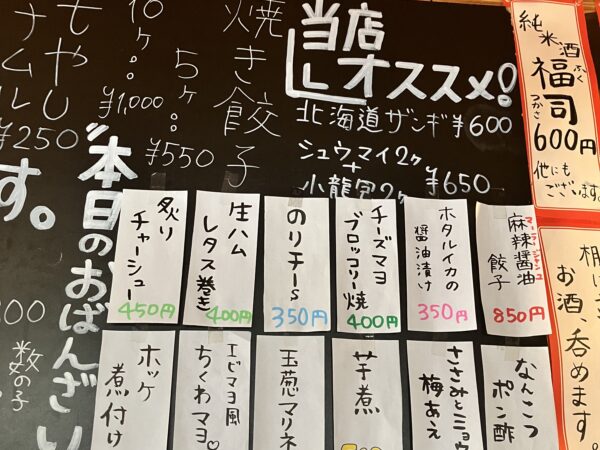 純米酒
福司
ふく
つかさ
600円
他にも
ございます。
当店
オススメ!
北海道ザンギ ¥600
シュウマイ2ヶ
+
小龍包2ヶ ¥650
焼き餃子
5ヶ
¥550
10ヶ
¥1,000
もやし
ナムル
¥250
本日のおばんざい
す。
数の子
マーラージャンユ
麻辣醤油
餃子
850円
ホタルイカの
醤油漬け
350円
チーズマヨ
ブロッコリー焼
400円
のりチーs
350円
生ハム
レタス巻き
400円
炙り
チャーシュー
450円
なんこつ
ポン酢
ささみとミョウ
梅あえ
芋煮
玉葱マリネ
エビマヨ風
ちくわマヨ♡
ホッケ
煮付け
お酒、呑めます。